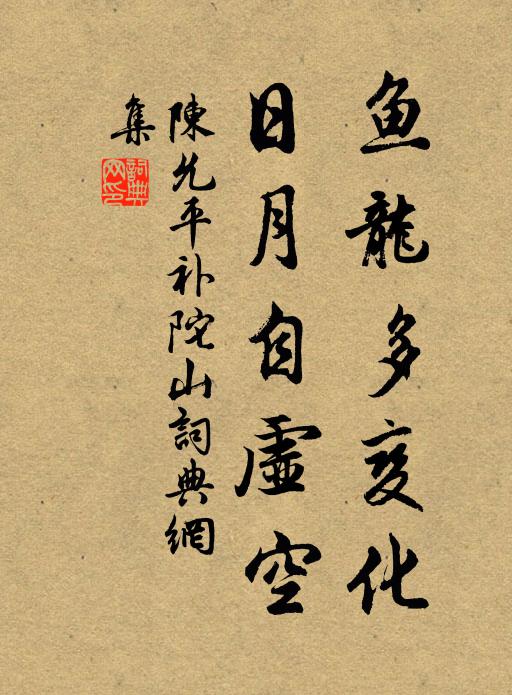 鱼龍多变化
日月自虛空
陳允平补陀山詞典網
集
詞典网印